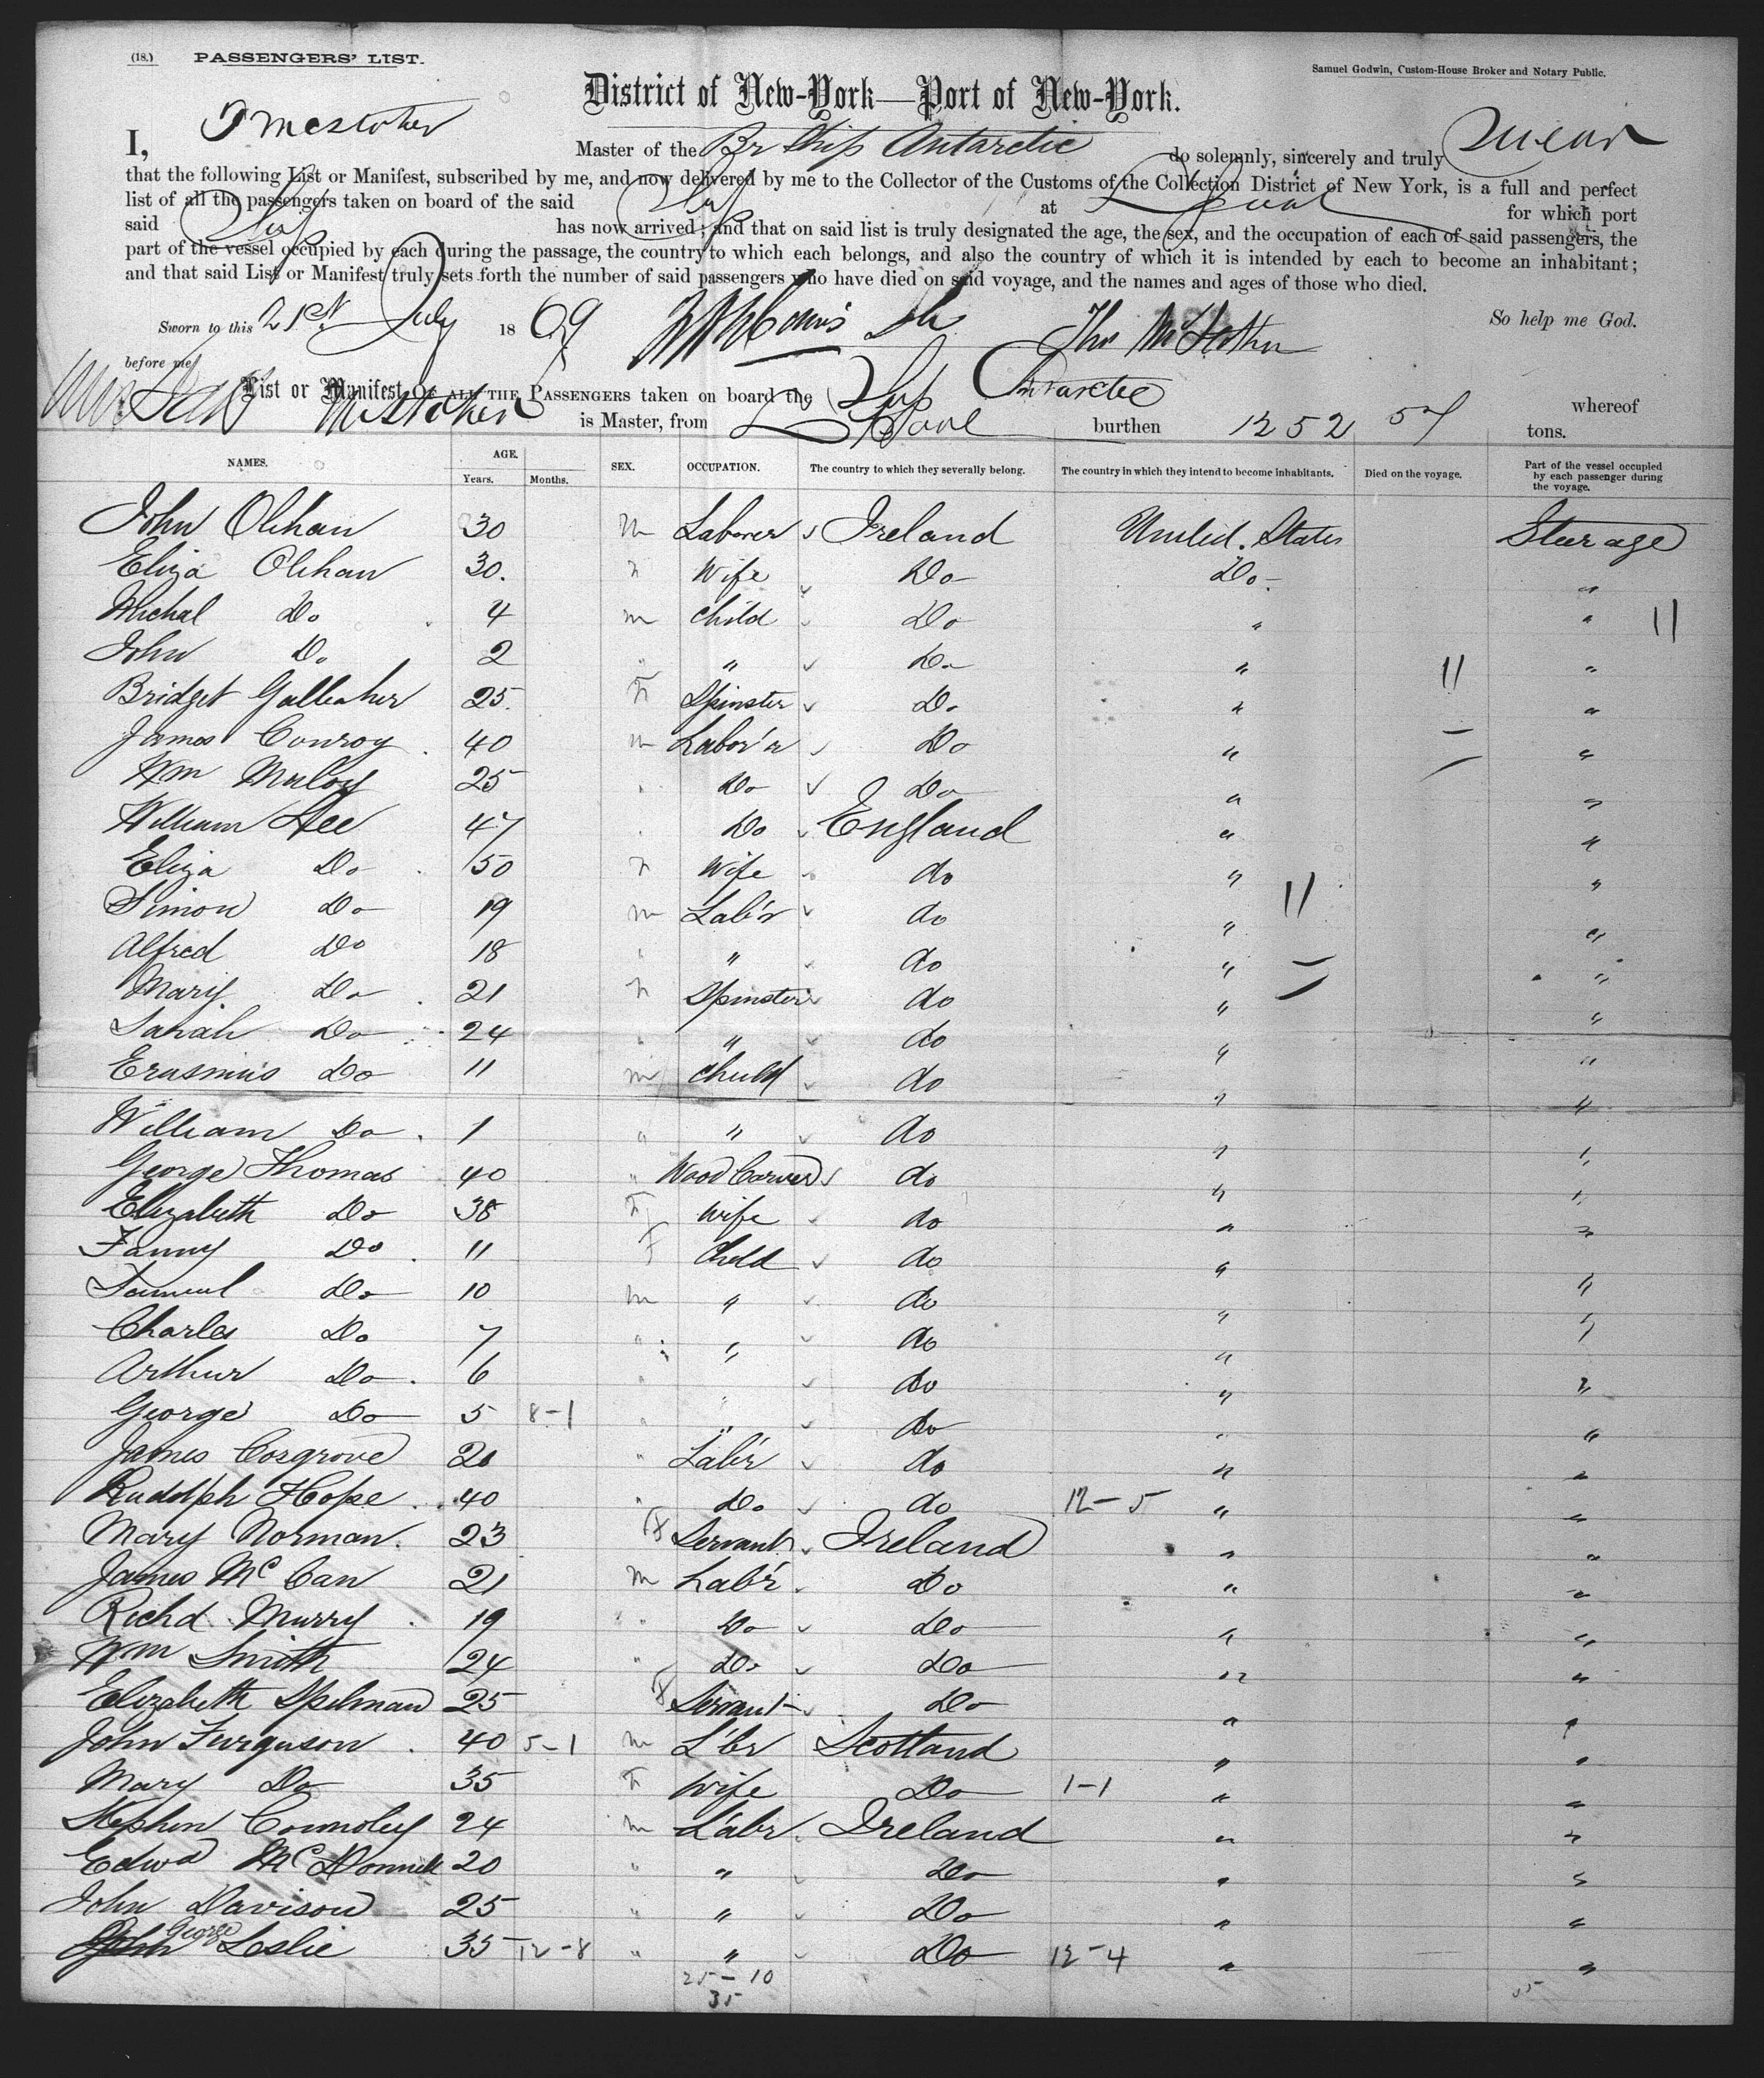 (18.) PASSENGERS' LIST.
Samuel Godwin, Custom-House Broker and Notary Public.
District of New-York—Port of New-York.
I, Master of the Br Ship Antarctic do solemnly, sincerely and truly swear
that the following List or Manifest, subscribed by me, and now delivered by me to the Collector of the Customs of the Collection District of New York, is a full and perfect
list of all the passengers taken on board of the said Ship at L'pool for which port
said Ship has now arrived; and that on said list is truly designated the age, the sex, and the occupation of each of said passengers, the
part of the vessel occupied by each during the passage, the country to which each belongs, and also the country of which it is intended by each to become an inhabitant;
and that said List or Manifest truly sets forth the number of said passengers who have died on said voyage, and the names and ages of those who died.
Sworn to this 21st July 1869 So help me God.
before me
List or Manifest OF ALL THE PASSENGERS taken on board the Ship Antarctic whereof
is Master, from L'Pool burthen 1252 57 tons.
NAMES. AGE. Years. Months. SEX. OCCUPATION. The country to which they severally belong. The country in which they intend to become inhabitants. Died on the voyage. Part of the vessel occupied by each passenger during the voyage.
John Olehan 30 M Laborer Ireland United States Steerage
Eliza Olehan 30. F Wife Do Do "
Michal Do 4 m Child Do " " 11
John Do 2 " " Do " 11 "
Bridget Gallaher 25. F Spinster Do " "
James Conroy 40 m Labor'r Do " "
Wm Maloy 25 Do Do " "
William Lee 47 Do England " "
Eliza Do 50 F Wife do " "
Simon Do 19 m Lab'r do " 11 "
Alfred Do 18 " " do " "
Mary Do 21 F Spinster do " "
Sarah Do 24 " " do " "
Erasmus Do 11 m Child do " "
William Do 1 " " do " "
George Thomas 40 " Wood Carver do " "
Elizabeth Do 38 F Wife do " "
Fanny Do 11 F Child do " "
Samuel Do 10 m " do " "
Charles Do 7 " " do " "
Arthur Do 6 " " do " "
George Do 5 8-1 " " do " "
James Cosgrove 20 " Lab'r do " "
Rudolph Hope 40 " Do do 12-5 " "
Mary Norman 23 F Servant Ireland " "
James McCan 21 m Lab'r Do " "
Richd Murry 19 " Do Do " "
Wm Smith 24 " Do Do " "
Elizabeth Spelman 25 F Servant Do " "
John Furguson 40 5-1 m L'br Scotland " "
Mary Do 35 F Wife Do 1-1 " "
Stephen Connoley 24 m Labr Ireland " "
Edwd McDonnell 20 " " Do " "
John Davison 25 " " Do " "
George Leslie 35 12-8 " " Do 12-4 " "
25-10
35